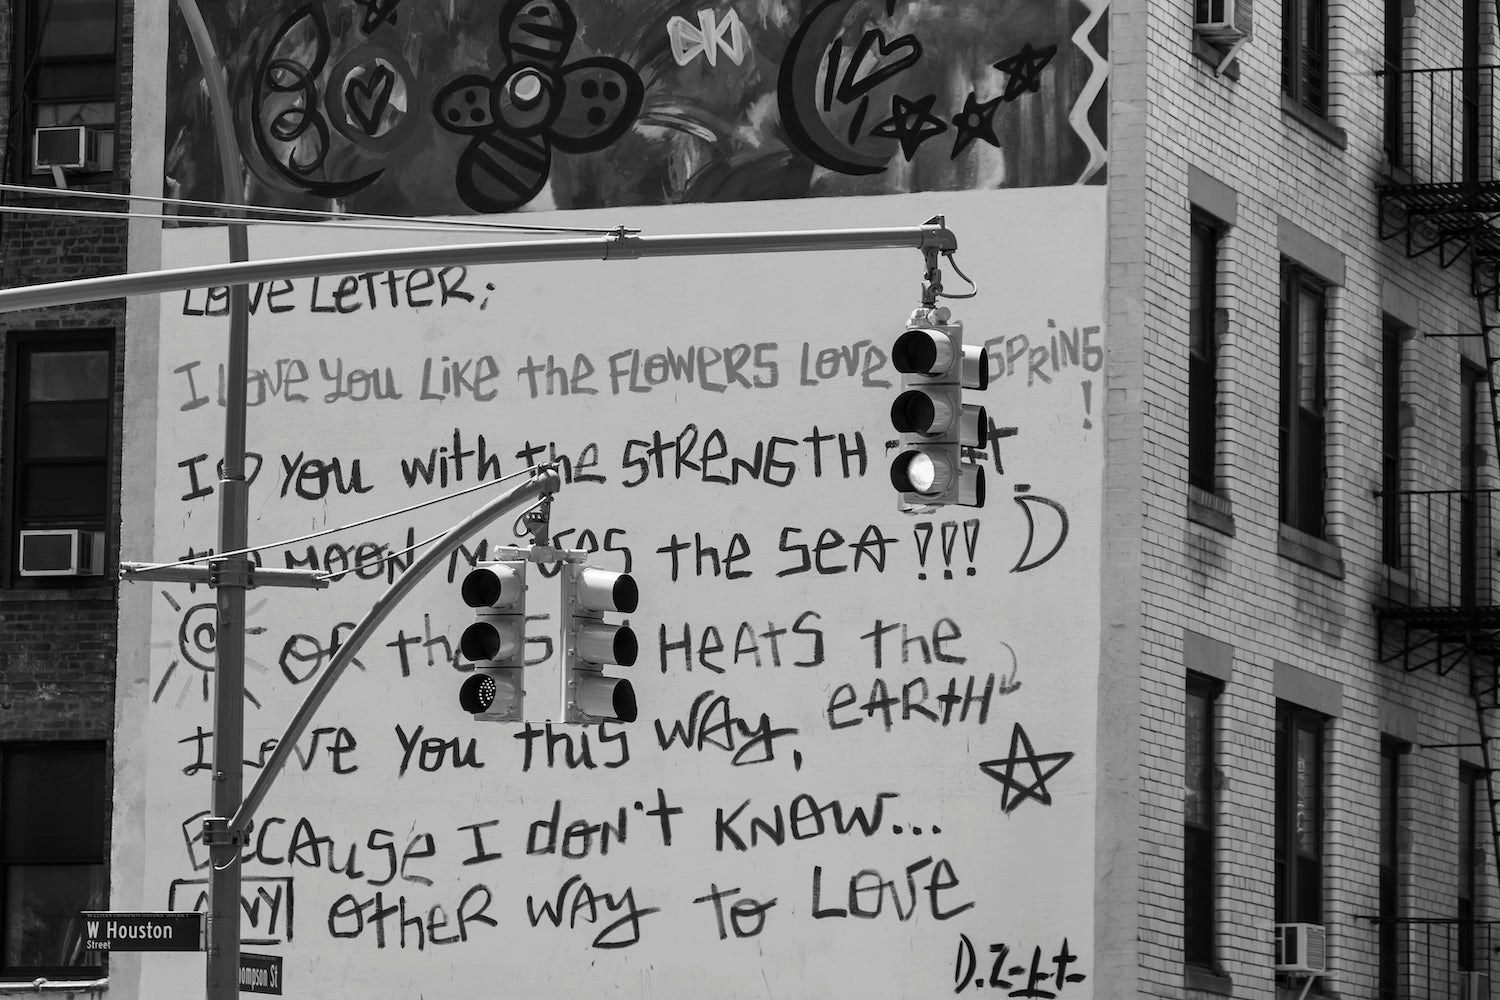 LOVE LETTER;
I LOVE YOU LIKE the FLOWERS LOVE SPRING!
I ♡ YOU with the STRENGTH
the MOON MOVES the SEA !!!
OR the HEATS the
EARTH
I LOVE YOU this WAY,
BECAUSE I don't KNOW...
ANY OTHER WAY to LOVE
W Houston
Street
ompson St